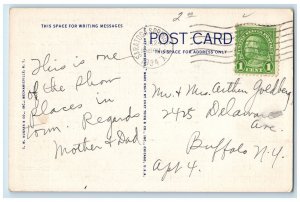 THIS SPACE FOR WRITING MESSAGES
POST CARD
THIS SPACE FOR ADDRESS ONLY
1 CENT 1
This is one
of the show
places in
town. Regards
Mother & Dad
Mr & Mrs. Arthur Goldberg
2425 Delaware
Ave.
Buffalo N.Y.
Apt 4.